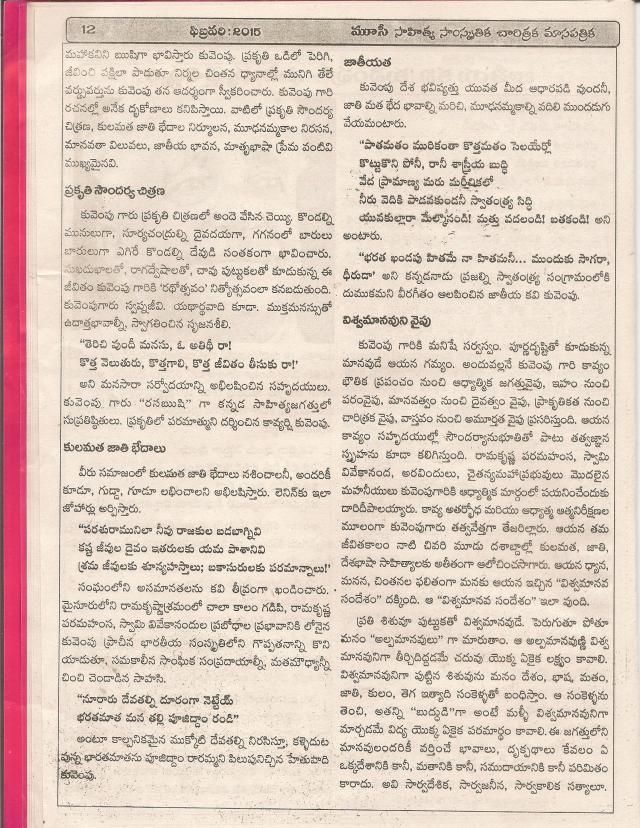 12
ఫిబ్రవరి: 2015
మూసీ సాహిత్య సాంస్కృతిక చారిత్రక మాసపత్రిక
మహాకవిని ఋషిగా భావిస్తారు కువెంపు. ప్రకృతి ఒడిలో పెరిగి,
జీవించి పక్షిలా పాడుతూ నిర్మల చింతన ధ్యానాల్లో మునిగి తేలే
వర్డ్సువర్తును కువెంపు తన ఆదర్శంగా స్వీకరించారు. కువెంపు గారి
రచనల్లో అనేక దృక్కోణాలు కనిపిస్తాయి. వాటిలో ప్రకృతి సౌందర్య
చిత్రణ, కులమత జాతి భేదాల నిర్మూలన, మూఢనమ్మకాల నిరసన,
మానవతా విలువలు, జాతీయ భావన, మాతృభాషా ప్రేమ వంటివి
ముఖ్యమైనవి.
ప్రకృతి సౌందర్య చిత్రణ
కువెంపు గారు ప్రకృతి చిత్రణలో అందె వేసిన చెయ్యి. కొండల్ని
మునులుగా, సూర్యచంద్రుల్ని దైవదయగా, గగనంలో బారులు
బారులుగా ఎగిరే కొండల్ని దేవుడి సంతకంగా భావించారు.
సుఖదుఃఖాలతో, రాగద్వేషాలతో, చావు పుట్టుకలతో కూడుకున్న ఈ
జీవితం కువెంపు గారికి 'రథోత్సవం' నిత్యోత్సవంలా కనబడుతుంది.
కువెంపుగారు స్వప్నజీవి. యథార్థవాది కూడా. ముక్తమనస్సుతో
ఉదాత్తభావాల్నీ, స్వాగతించిన సృజనశీలి.
"తెరిచి వుందీ మనసు, ఓ అతిథీ రా!
కొత్త వెలుతురు, కొత్తగాలి, కొత్త జీవితం తీసుకు రా!'
అని మనసారా సర్వోదయాన్ని అభిలషించిన సహృదయులు.
కువెంపు గారు "రసఋషి" గా కన్నడ సాహిత్యజగత్తులో
సుప్రతిష్ఠితులు. ప్రకృతిలో పరమాత్ముని దర్శించిన కావ్యర్షి కువెంపు.
కులమత జాతి భేదాలు
వీరు సమాజంలో కులమత జాతి భేదాలు నశించాలనీ, అందరికీ
కూడూ, గుడ్డా, గూడూ లభించాలని అభిలషిస్తారు. లెనిన్‌కు ఇలా
జోహార్లు అర్పిస్తారు.
"పరశురామునిలా నీవు రాజకుల బడబాగ్నివి
కష్ట జీవుల దైవం ఇతరులకు యమ పాశానివి
శ్రమ జీవులకు శూన్యహస్తాలు; బకాసురులకు పరమాన్నాలు!'
సంఘంలోని అసమానతలను కవి తీవ్రంగా ఖండించారు.
మైసూరులోని రామకృష్ణాశ్రమంలో చాలా కాలం గడిపి, రామకృష్ణ
పరమహంస, స్వామి వివేకానందుల ప్రబోధాల ప్రభావానికి లోనైన
కువెంపు ప్రాచీన భారతీయ సంస్కృతిలోని గొప్పతనాన్ని కొని
యాడుతూ, సమకాలీన సాంఘిక సంప్రదాయాల్నీ, మతమౌఢ్యాన్నీ
చించి చెండాడిన సాహసి.
"నూరారు దేవతల్ని దూరంగా నెట్టేయ్
భరతమాత మన తల్లి పూజిద్దాం రండి"
అంటూ కాల్పనికమైన ముక్కోటి దేవతల్ని నిరసిస్తూ, కళ్ళెదుట
వున్న భారతమాతను పూజిద్దాం రారమ్మని పిలుపునిచ్చిన హేతువాది
కువెంపు.
జాతీయత
కువెంపు దేశ భవిష్యత్తు యువత మీద ఆధారపడి వుందనీ,
జాతి మత భేద భావాల్ని మరిచి, మూఢనమ్మకాల్ని వదిలి ముందడుగు
వేయమంటారు.
"పాతమతం మురికింతా కొత్తమతం సెలయేర్లో
కొట్టుకొని పోనీ, రానీ శాస్త్రీయ బుద్ధి
వేద ప్రామాణ్య మరు మరీచికలో
నీరు వెదికి పాడవకుండనీ స్వాతంత్ర్య సిద్ధి
యువకుల్లారా మేల్కొనండి! మత్తు వదలండి! బతకండి! అని
అంటారు.
"భరత ఖండపు హితమే నా హితమనీ... ముందుకు సాగరా,
ధీరుడా' అని కన్నడనాడు ప్రజల్ని స్వాతంత్ర్య సంగ్రామంలోకి
దుముకమని వీరగీతం ఆలపించిన జాతీయ కవి కువెంపు.
విశ్వమానవుని వైపు
కువెంపు గారికి మనిషే సర్వస్వం. పూర్ణదృష్టితో కూడుకున్న
మానవుడే ఆయన గమ్యం. అందువల్లనే కువెంపు గారి కావ్యం
భౌతిక ప్రపంచం నుంచి ఆధ్యాత్మిక జగత్తువైపు, ఇహం నుంచి
పరంవైపు, మానవత్వం నుంచి దైవత్వం వైపు, ప్రాకృతికత నుంచి
చారిత్రక వైపు, వాస్తవం నుంచి అమూర్తత వైపు ప్రసరిస్తుంది. ఆయన
కావ్యం సహృదయుల్లో సౌందర్యానుభూతితో పాటు తత్వజ్ఞాన
స్పృహను కూడా కలిగిస్తుంది. రామకృష్ణ పరమహంస, స్వామి
వివేకానంద, అరవిందులు, చైతన్యమహాప్రభువులు మొదలైన
మహనీయులు కువెంపుగారికి ఆధ్యాత్మిక మార్గంలో పయనించేందుకు
దారిదీపాలయ్యారు. కావ్య అతర్బోధ మరియు ఆధ్యాత్మ ఆత్మనిరీక్షణల
మూలంగా కువెంపుగారు తత్వవేత్తగా తేజరిల్లారు. ఆయన తమ
జీవితకాలం నాటి చివరి మూడు దశాబ్దాల్లో కులమత, జాతి,
దేశభాషా సాహిత్యాలకు అతీతంగా ఆలోచించసాగారు. ఆయన ధ్యాన,
మనన, చింతనల ఫలితంగా మనకు ఆయన ఇచ్చిన "విశ్వమానవ
సందేశం" దక్కింది. ఆ "విశ్వమానవ సందేశం" ఇలా వుంది.
ప్రతి శిశువూ పుట్టుకతో విశ్వమానవుడే. పెరుగుతూ పోతూ
మనం "అల్పమానవులు" గా మారుతాం. ఆ అల్పమానవుణ్ణి విశ్వ
మానవునిగా తీర్చిదిద్దడమే చదువు యొక్క ఏకైక లక్ష్యం కావాలి.
విశ్వమానవునిగా పుట్టిన శిశువును మనం దేశం, భాష, మతం,
జాతి, కులం, తెగ ఇత్యాది సంకెళ్ళతో బంధిస్తాం. ఆ సంకెళ్లను
తెంచి, అతన్ని "బుద్ధుడి"గా అంటే మళ్ళీ విశ్వమానవునిగా
మార్చడమే విద్య యొక్క ఏకైక పరమార్థం కావాలి.ఈ జగత్తులోని
మానవులందరికీ వర్తించే భావాలు, దృక్పథాలు కేవలం ఏ
ఒక్కదేశానికి కానీ, మతానికి కానీ, సముదాయానికి కానీ పరిమితం
కారాదు. అవి సార్వదేశిక, సార్వజనీన, సార్వకాలిక సత్యాలూ.